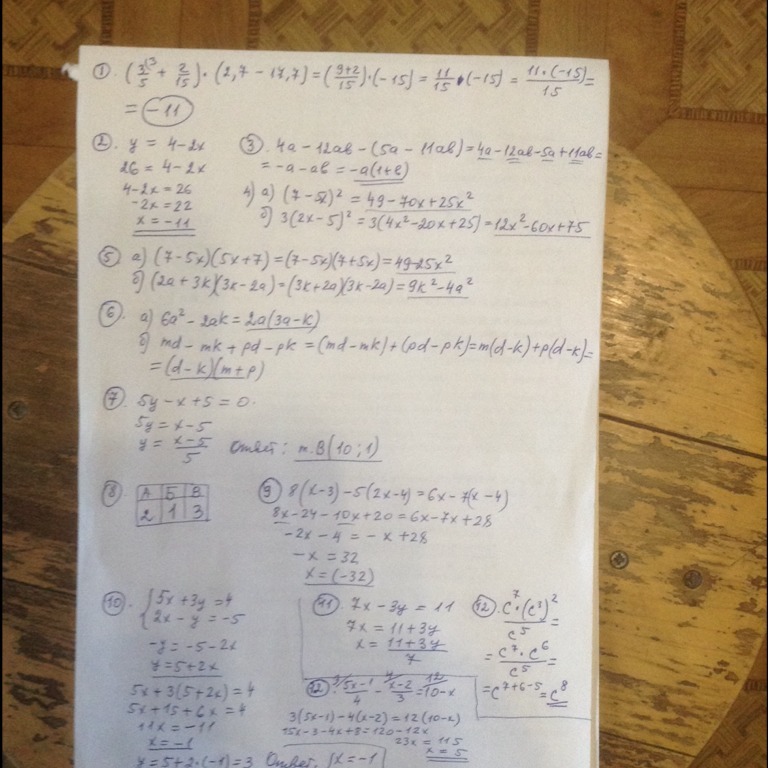 ① (3/5⁽³ + 2/15) · (2,7 − 17,7) = (9+2/15) · (−15) = 11/15 · (−15) = 11·(−15)/15 =
= −11
② y = 4 − 2x
26 = 4 − 2x
4 − 2x = 26
−2x = 22
x = −11
③ 4a − 12ab − (5a − 11ab) = 4a − 12ab − 5a + 11ab =
= −a − ab = −a(1+b)
4) а) (7 − 5x)² = 49 − 70x + 25x²
б) 3(2x − 5)² = 3(4x² − 20x + 25) = 12x² − 60x + 75
⑤ а) (7 − 5x)(5x + 7) = (7 − 5x)(7 + 5x) = 49 − 25x²
б) (2a + 3k)(3k − 2a) = (3k + 2a)(3k − 2a) = 9k² − 4a²
⑥. а) 6a² − 2ak = 2a(3a − k)
б) md − mk + pd − pk = (md − mk) + (pd − pk) = m(d − k) + p(d − k) =
= (d − k)(m + p)
⑦ 5y − x + 5 = 0.
5y = x − 5
y = x − 5/5 Ответ: т. B(10; 1)
⑧ А Б В
2 1 3
⑨ 8(x − 3) − 5(2x − 4) = 6x − 7(x − 4)
8x − 24 − 10x + 20 = 6x − 7x + 28
−2x − 4 = −x + 28
−x = 32
x = (−32)
⑩. { 5x + 3y = 4
2x − y = −5
−y = −5 − 2x
y = 5 + 2x
5x + 3(5 + 2x) = 4
5x + 15 + 6x = 4
11x = −11
x = −1
y = 5 + 2·(−1) = 3 Ответ. { x = −1
⑪. 7x − 3y = 11
7x = 11 + 3y
x = 11 + 3y/7
⑫. c⁷ · (c³)²/c⁵ =
= c⁷ · c⁶/c⁵ =
= c⁷⁺⁶⁻⁵ = c⁸
⑫ 3/ 5x − 1/4 − 4/ x − 2/3 = 12/ 10 − x
3(5x − 1) − 4(x − 2) = 12(10 − x)
15x − 3 − 4x + 8 = 120 − 12x
23x = 115
x = 5